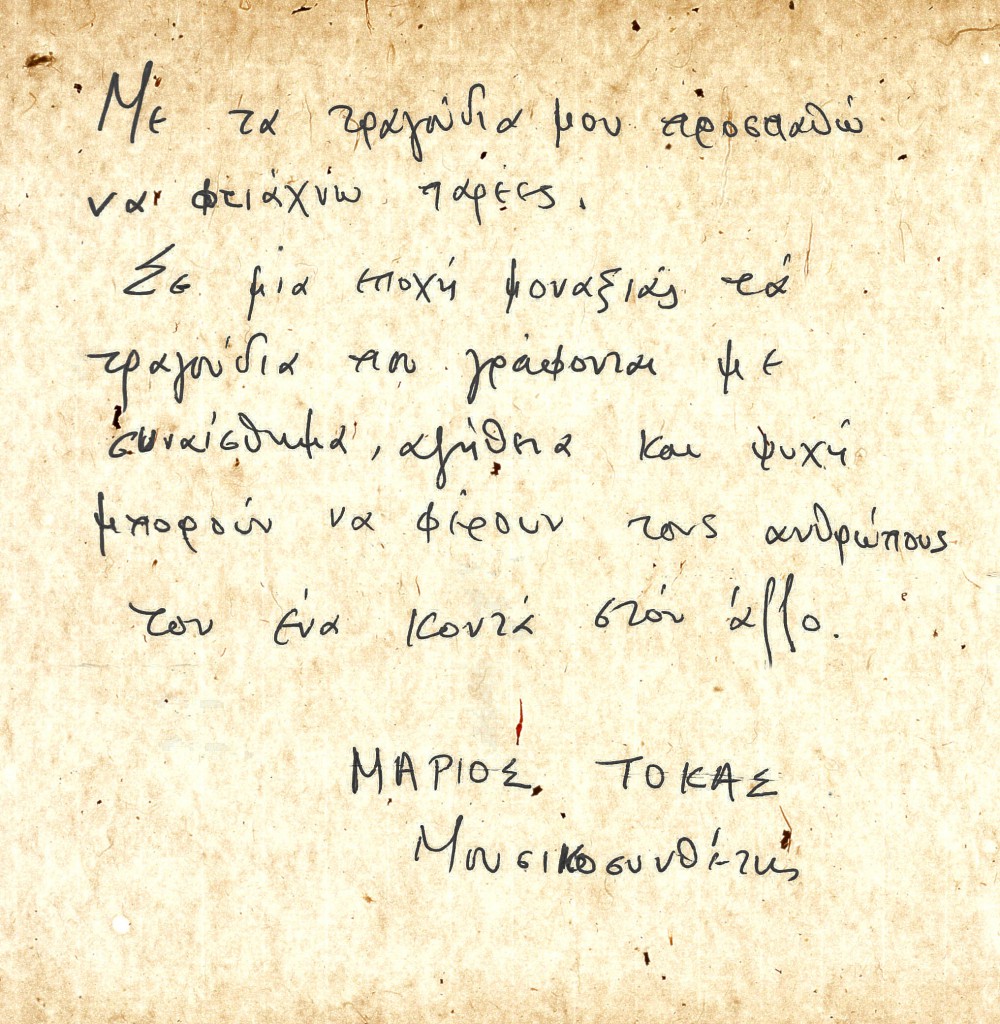 Με τα τραγούδια μου προσπαθώ
να φτιάχνω παρέες.
Σε μια εποχή μοναξιάς τά
τραγούδια που γράφονται με
συναίσθημα, αλήθεια και ψυχή
μπορούν να φέρουν τους ανθρώπους
τον ένα κοντά στόν άλλο.
ΜΑΡΙΟΣ ΤΟΚΑΣ
Μουσικοσυνθέτης